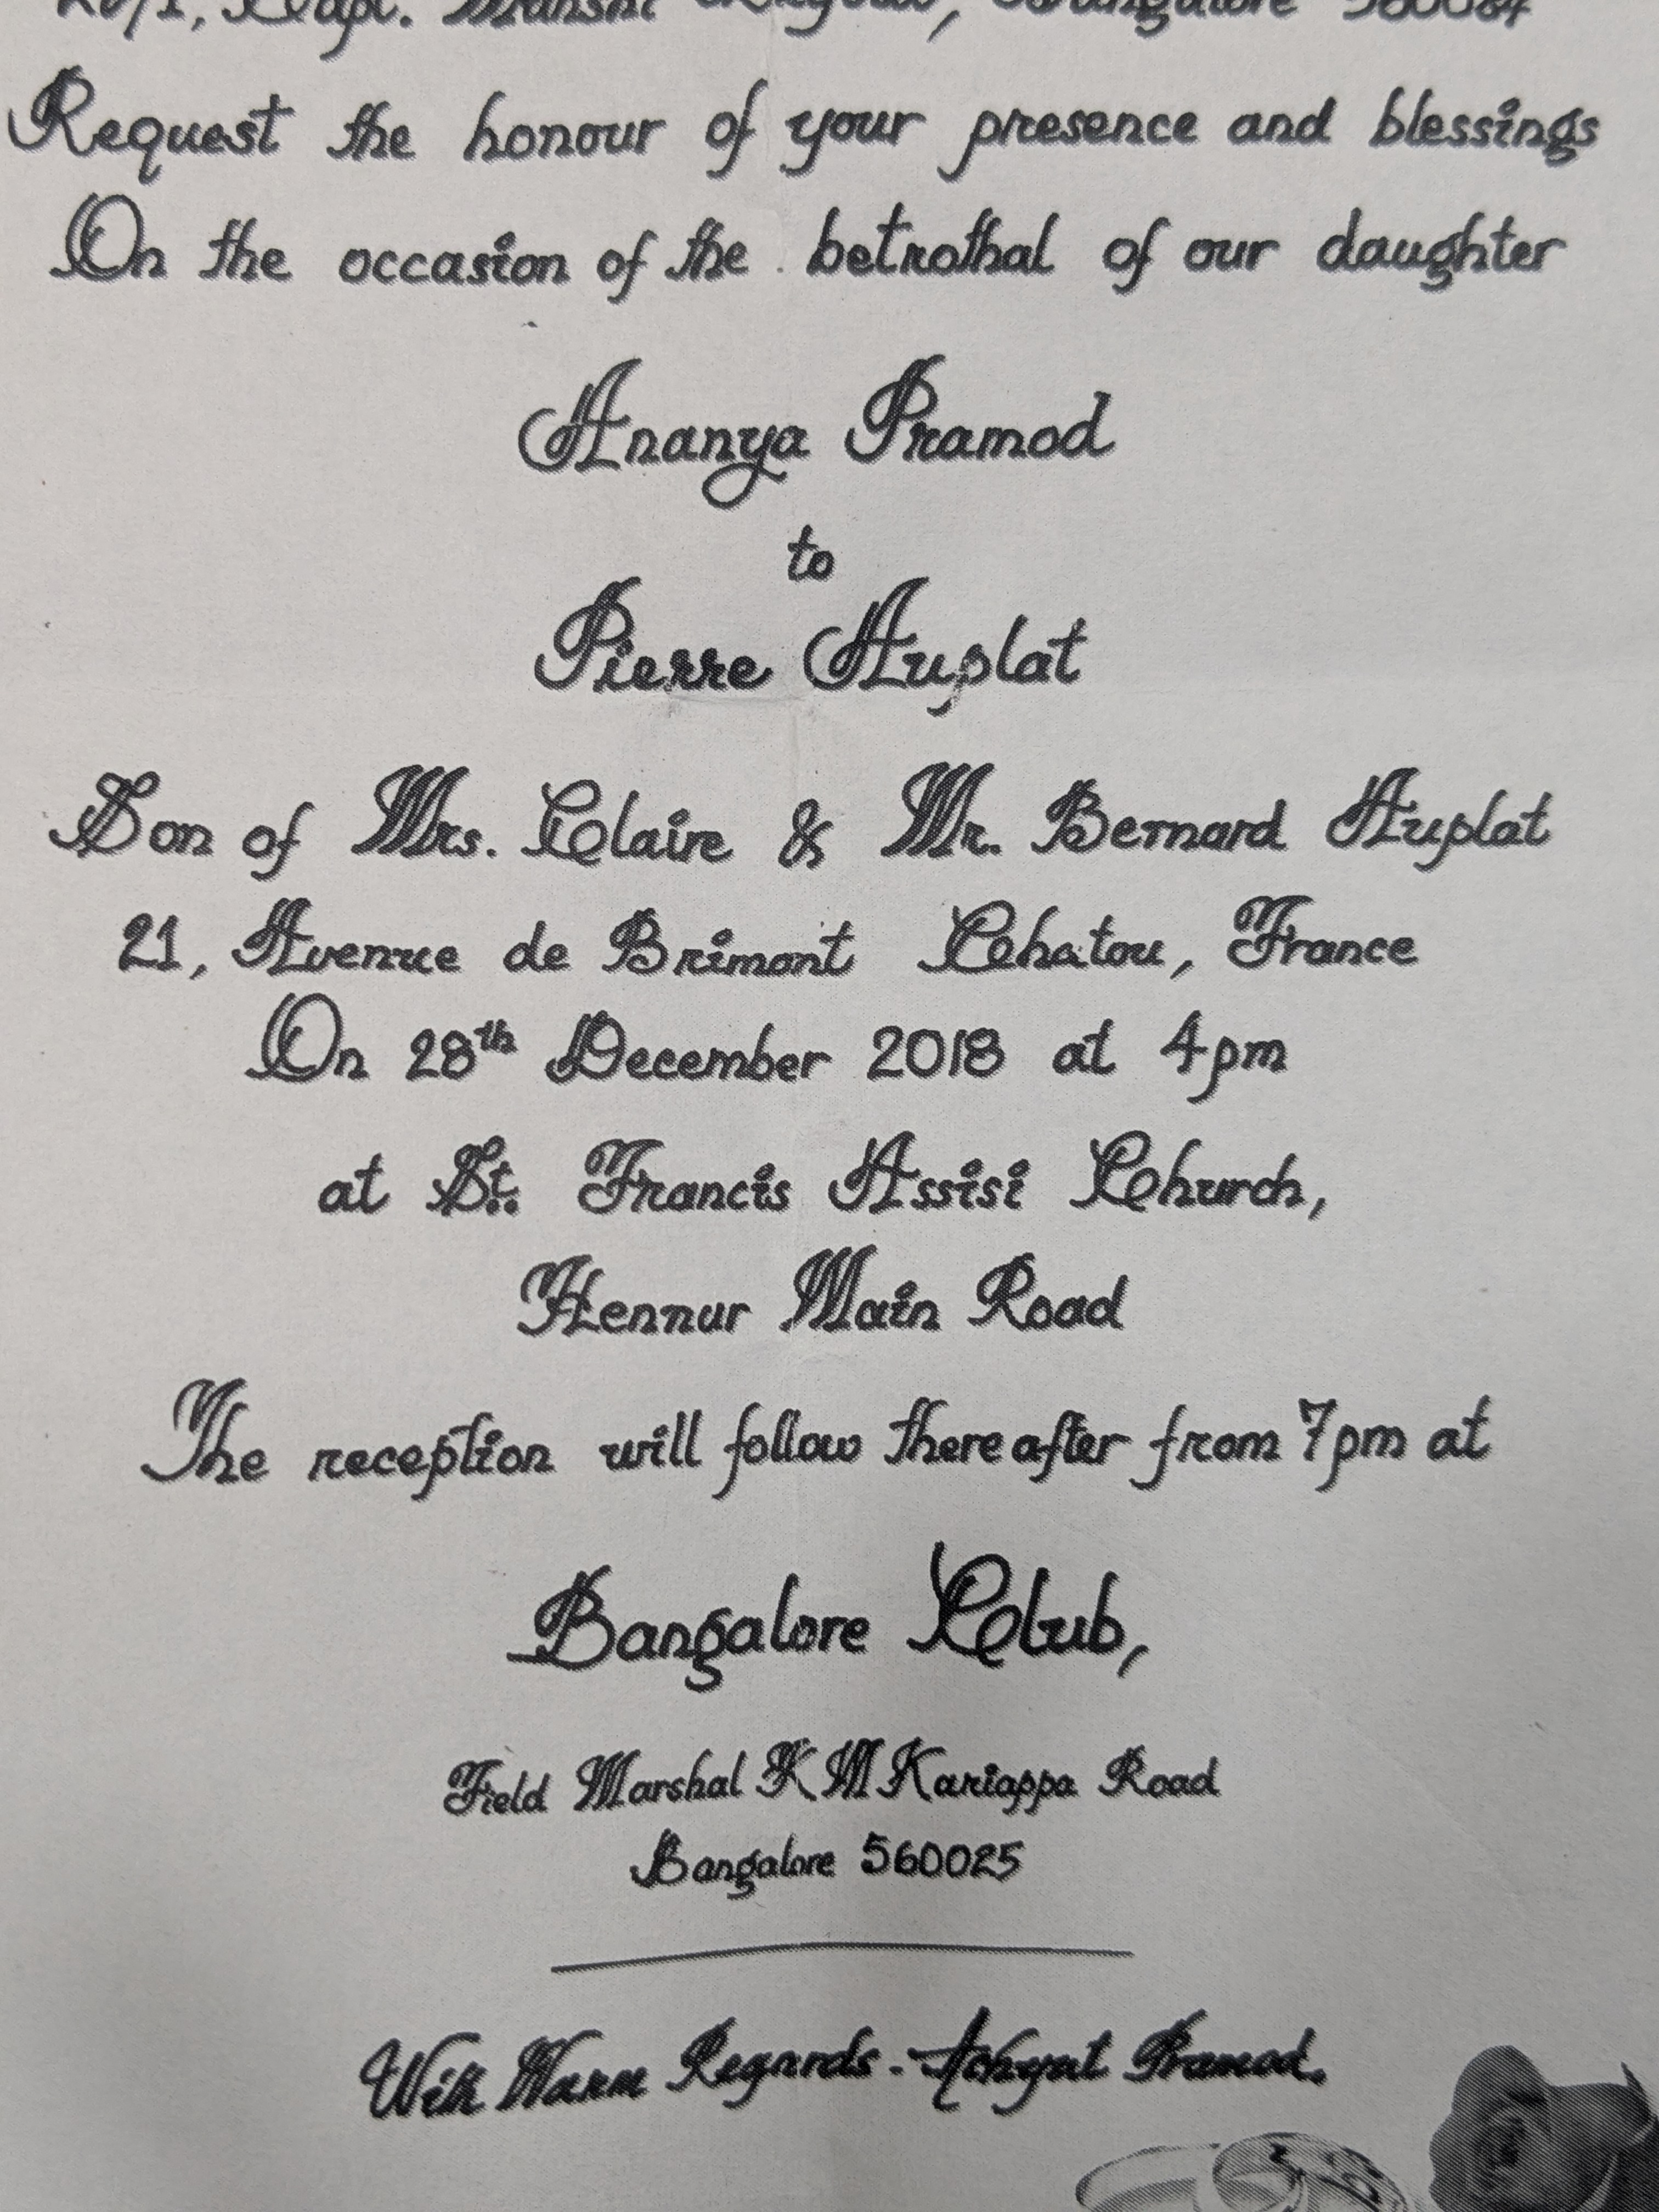 Request the honour of your presence and blessings
On the occasion of the betrothal of our daughter
Ananya Pramod
to
Pierre Auplat
Son of Mrs. Claire & Mr. Bernard Auplat
21, Avenue de Brimont Chatou, France
On 28th December 2018 at 4pm
at St. Francis Assisi Church,
Hennur Main Road
The reception will follow thereafter from 7pm at
Bangalore Club,
Field Marshal K M Kariappa Road
Bangalore 560025
With Warm Regards - Pramod.